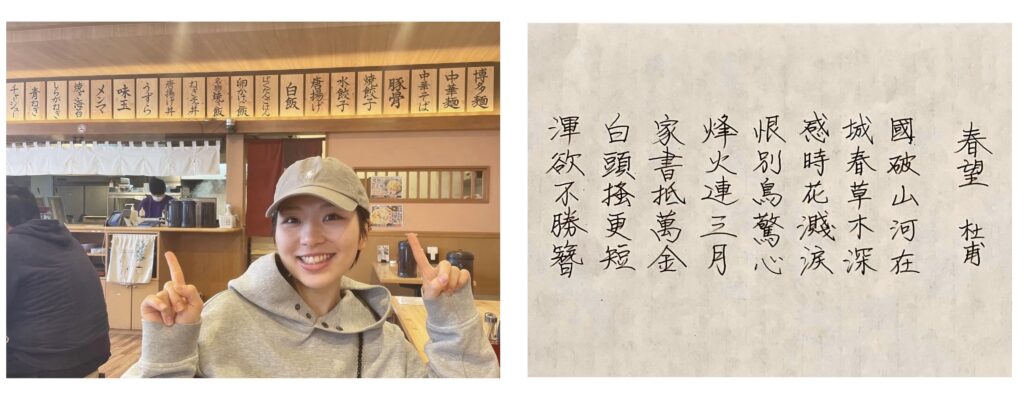 博多麺
中華麺
中華そば
豚骨
焼餃子
水餃子
唐揚げ
白飯
卵かけ飯
名物焼き飯
唐揚げ丼
うずら
味玉
メンマ
焼き海苔
しらがねぎ
青ねぎ
チャーシュー
春望 杜甫
國破山河在
城春草木深
感時花濺淚
恨別鳥驚心
烽火連三月
家書抵萬金
白頭搔更短
渾欲不勝簪